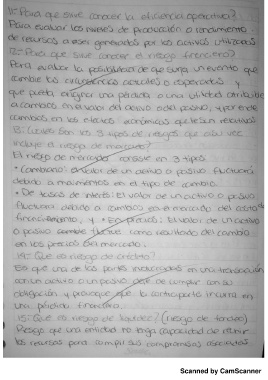 11.- Para que sirve conocer la eficiencia operativa?
Para evaluar los niveles de producción o rendimiento
de recursos a ser generados por los activos utilizados
12.- Para que sirve conocer el riesgo financiero?
Para evaluar la posibilidad de que surja un evento que
cambie las circunstancias actuales o esperadas
que pueda originar una pérdida o una utilidad atribuible
a cambios en el valor del activo o del pasivo, y por ende
cambios en los efectos económicos que le son relativos.
13.- Cuáles son los 3 tipos de riesgos que a su vez
incluye el riesgo de mercado?
El riesgo de mercado consiste en 3 tipos.
• Cambiario: El valor de un activo o pasivo fluctuará
debido a movimientos en el tipo de cambio.
• De tasas de interés: El valor de un activo o pasivo
fluctuará debido a cambios en el mercado del costo
financiamiento, y • En precios: El valor de un activo
o pasivo fluctúe como resultado del cambio
en los precios del mercado.
14.- Que es riesgo de crédito?
Es que una de las partes involucradas en una transacción
con un activo o un pasivo deje de cumplir con su
obligación y provoque que la contraparte incurra en
una pérdida financiera.
15.- Que es riesgo de liquidez? (riesgo de fondeo)
Riesgo que una entidad no tenga capacidad de reunir
los recursos para cumplir sus compromisos
Scanned by CamScanner